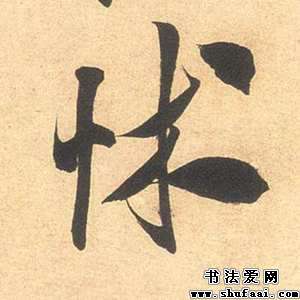 怵
书法爱网
www.shufaai.com